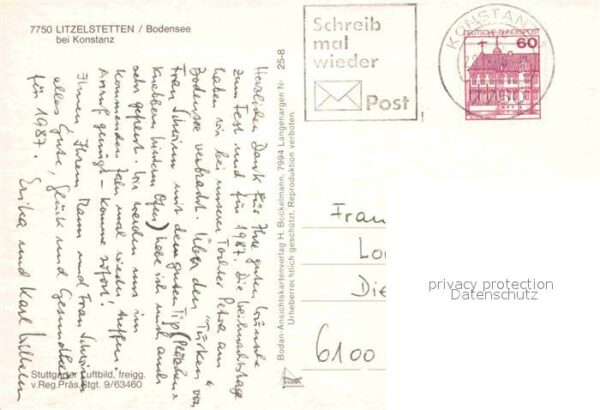 7750 LITZELSTETTEN / Bodensee
bei Konstanz
Schreib
mal
wieder
Post
KONSTANZ
DEUTSCHE BUNDESPOST
60
Herzlichen Dank für Ihre guten Wünsche
zum Fest und für 1987. Die Weihnachtstage
haben wir bei unserer Tochter Petra am
Bodensee verbracht. Über den "Türken von
Frau Schwinn mit dem guten Tip (Plätzchen
knabbern hinterm Ofen) habe ich mich auch
sehr gefreut. Wir werden uns im
kommenden Jahr mal wieder treffen
Anruf genügt - komme sofort!
Ihnen, Ihrem Mann und Frau Schwinn
alles Gute, Glück und Gesundheit
für 1987. Erika und Karl Wilhelm
Bodan-Ansichtskartenverlag H. Bockelmann, 7994 Langenargen Nr. 25-8
Urheberrechtlich geschützt. Reproduktion verboten
Stuttgarter Luftbild, freigg.
v. Reg. Präs. Stgt. 9/63460
Frau
Lo
Die
6100
privacy protection
Datenschutz